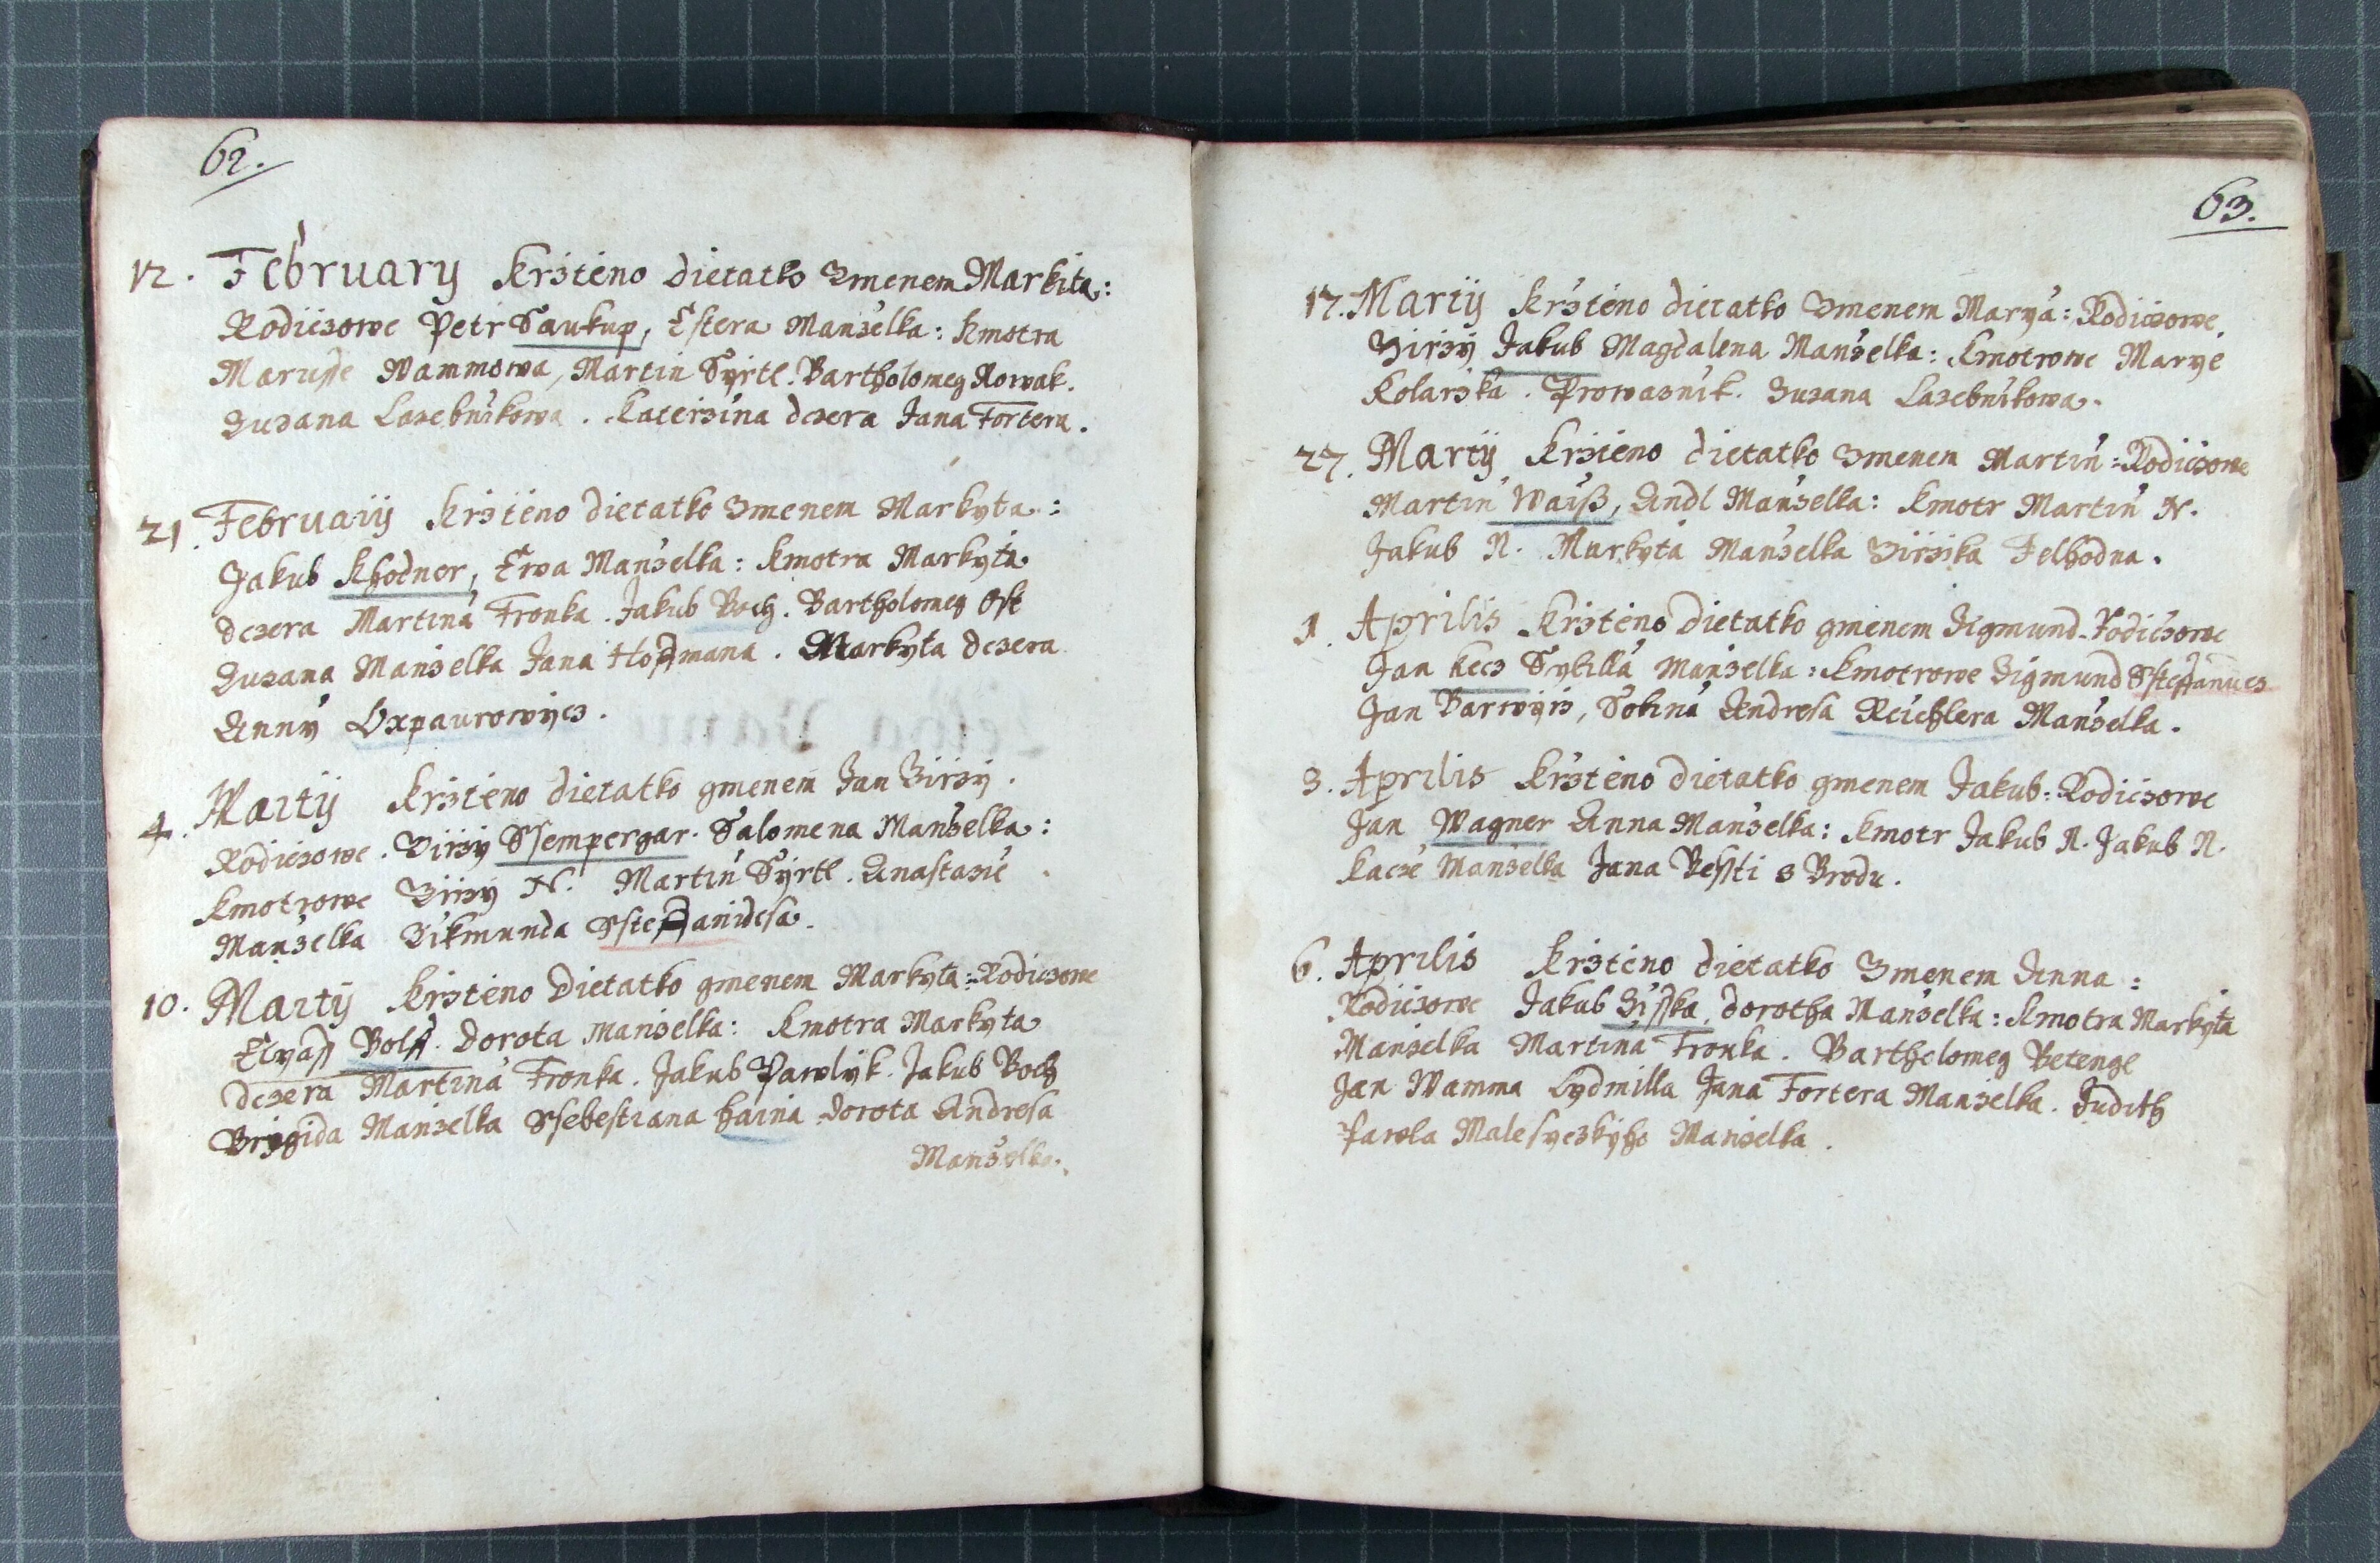 62.
12. February Krzteno dietatko Zmenem Markita:
Rodiczowe Petr Saukup, Estera Manzelka: Kmotra
Marusse Wammowa, Martin Syrtl. Bartholomeg Nowak.
Zuzana Lazebnikowa. Katerzina dczera Jana Fortera.
21. Februarij Krzteno dietatko Zmenem Markyta:
Jakub Khodner, Ewa Manzelka: Kmotra Markyta
dczera Martina Fronka. Jakub Boch. Bartholomeg Ost
Zuzana Manzelka Jana Hoffmana. Markyta dczera
Anny Oxpaurowycz.
4. Martij Krzteno dietatko gmenem Jan Zirzy.
Rodiczowe. Zirzy Ssempergar. Salomena Manzelka:
Kmotrowe Zirzy N. Martin Syrtl. Anastazie
Manzelka Zikmunda Ssteffanidesa.
10. Martij Krzteno Dietatko gmenem Markyta: Rodiczowe
Elyass Bolff. Dorota Manzelka: Kmotra Markyta
dczera Martina Fronka. Jakub Pawlyk. Jakub Boch
Brygida Manzelka Ssebestiana haina Dorota Andresa
Manzelka.
63.
17. Martij Krzteno dietatko Zmenem Marya: Rodiczowe
Zirzy Jakub Magdalena Manzelka: Kmotrowe Marye
Kolarzka. Prowaznik. Zuzana Lazebnikowa.
27. Martij Krzteno dietatko Zmenem Martin: Rodiczowe
Martin Waiß, Andl Manzelka: Kmotr Martin N.
Jakub N. Markyta Manzelka Zirzika Felhodna.
1. Aprilis Krzteno Dietatko gmenem Zigmund. Rodiczowe
Jan Kecz Sybilla Manzelka: Kmotrowe Zigmund Ssteffanides
Jan Barwyrz, Sobina Andresa Reichlera Manzelka.
3. Aprilis Krzteno dietatko gmenem Jakub: Rodiczowe
Jan Wagner Anna Manzelka: Kmotr Jakub N. Jakub N.
Kacze Manzelka Jana Bessti z Brodu.
6. Aprilis Krzteno dietatko Zmenem Anna:
Rodiczowe Jakub Zisska, dorotha Manzelka: Kmotra Markyta
Manzelka Martina Fronka. Bartholomeg Betenge
Jan Wamma Lydmilla Jana Fortera Manzelka. Judith
Pawla Malesyczkyho Manzelka.